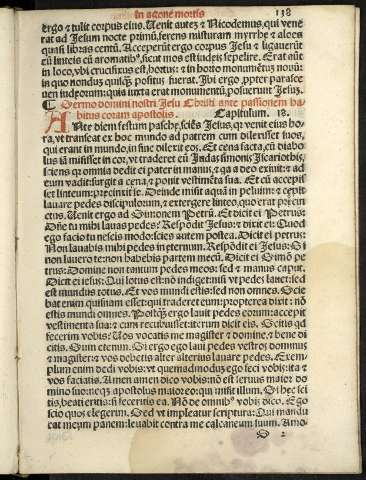 In agone mortis 138
ergo & tulit corpus eius. Uenit autez & Nicodemus, qui vene
rat ad Jesum nocte primū, ferens misturam myrrhe & aloes
quasi libras centū. Acceperūt ergo corpus Jesu & ligauerūt
eū linteis cū aromatibꝰ, sicut mos est indeis sepelire. Erat aūt
in loco, vbi crucifixus est, hortus: & in horto monumētū nouū:
in quo nondus quisqꝫ positus fuerat. Ibi ergo ꝓpter parasce
uen iudeorum: quia iuxta erat monumentū, posuerunt Jesuz.
Sermo domini nostri Jesu Christi ante passionem ha
bitus coram apostolis. Capitulum. 18.
Ante diem festum pasche, sciēs Jesus, qꝛ venit eius ho
ra, vt transeat ex hoc mundo ad patrem cum dilexisset suos,
qui erant in mundo, in fine dilexit eos. Et cena facta, cū diabo
lus iā misisset in cor, vt traderet eū Judas simonis Iscariothis,
sciens qꝛ omnia dedit ei pater in manus, & qꝛ a deo exiuit: & ad
deum vadit: surgit a cena, & ponit vestimēta sua. Et cū accepis
set linteum: precinxit se. Deinde misit aquā in peluim: & cepit
lauare pedes discipulorum, & extergere linteo, quo erat precin
ctus. Uenit ergo ad Simonem Petrū. Et dicit ei Petrus:
Dñe tu mihi lauas pedes: Respōdit Jesus: & dixit ei: Quod
ego facio tu nescis modo: scies autem postea. Dicit ei petrus:
Non lauabis mihi pedes in eternum. Respōdit ei Jesus: Si
non lauero te: non habebis partem mecū. Dicit ei Simō pe
trus: Domine non tantum pedes meos: sed & manus & caput.
Dicit ei iesus: Qui lotus est: nō indiget: nisi vt pedes lauet: sed
est mundus totus. Et vos mundi estis: sed non omnes. Scie
bat enim quisnam esset: qui traderet eum: propterea dixit: nō
estis mundi omnes. Postqꝫ ergo lauit pedes eorum: accepit
vestimenta sua: & cum recubuisset: iterum dicit eis. Scitis qd
fecerim vobis: Uos vocatis me magister & domine, & bene di
citis. Sum etenim. Si ergo ego laui pedes vestros dominus
& magister: & vos debetis alter alterius lauare pedes. Exem
plum enim dedi vobis: vt quemadmodus ego feci vobis: ita &
vos faciatis. Amen amen dico vobis: nō est seruus maior do
mino suo: neqꝫ apostolus maior eo: qui misit illum. Si hec sci
tis, beati eritis: si feceritis ea. Nō de omnibꝰ vobis dico. Ego
scio quos elegerim. Sed vt impleatur scriptura: Qui mandu
cat mecum panem: leuabit contra me calcaneum suum. Amo
2